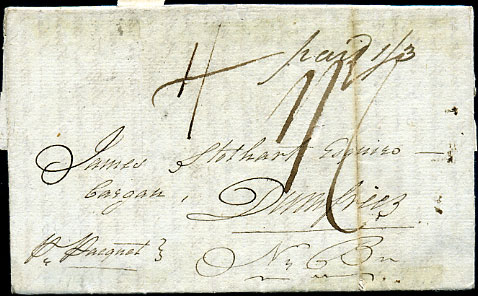 paid 1/3
James Stothart Esquire
Cargan,
Dumfries
pr. Pacquet
No. Bn